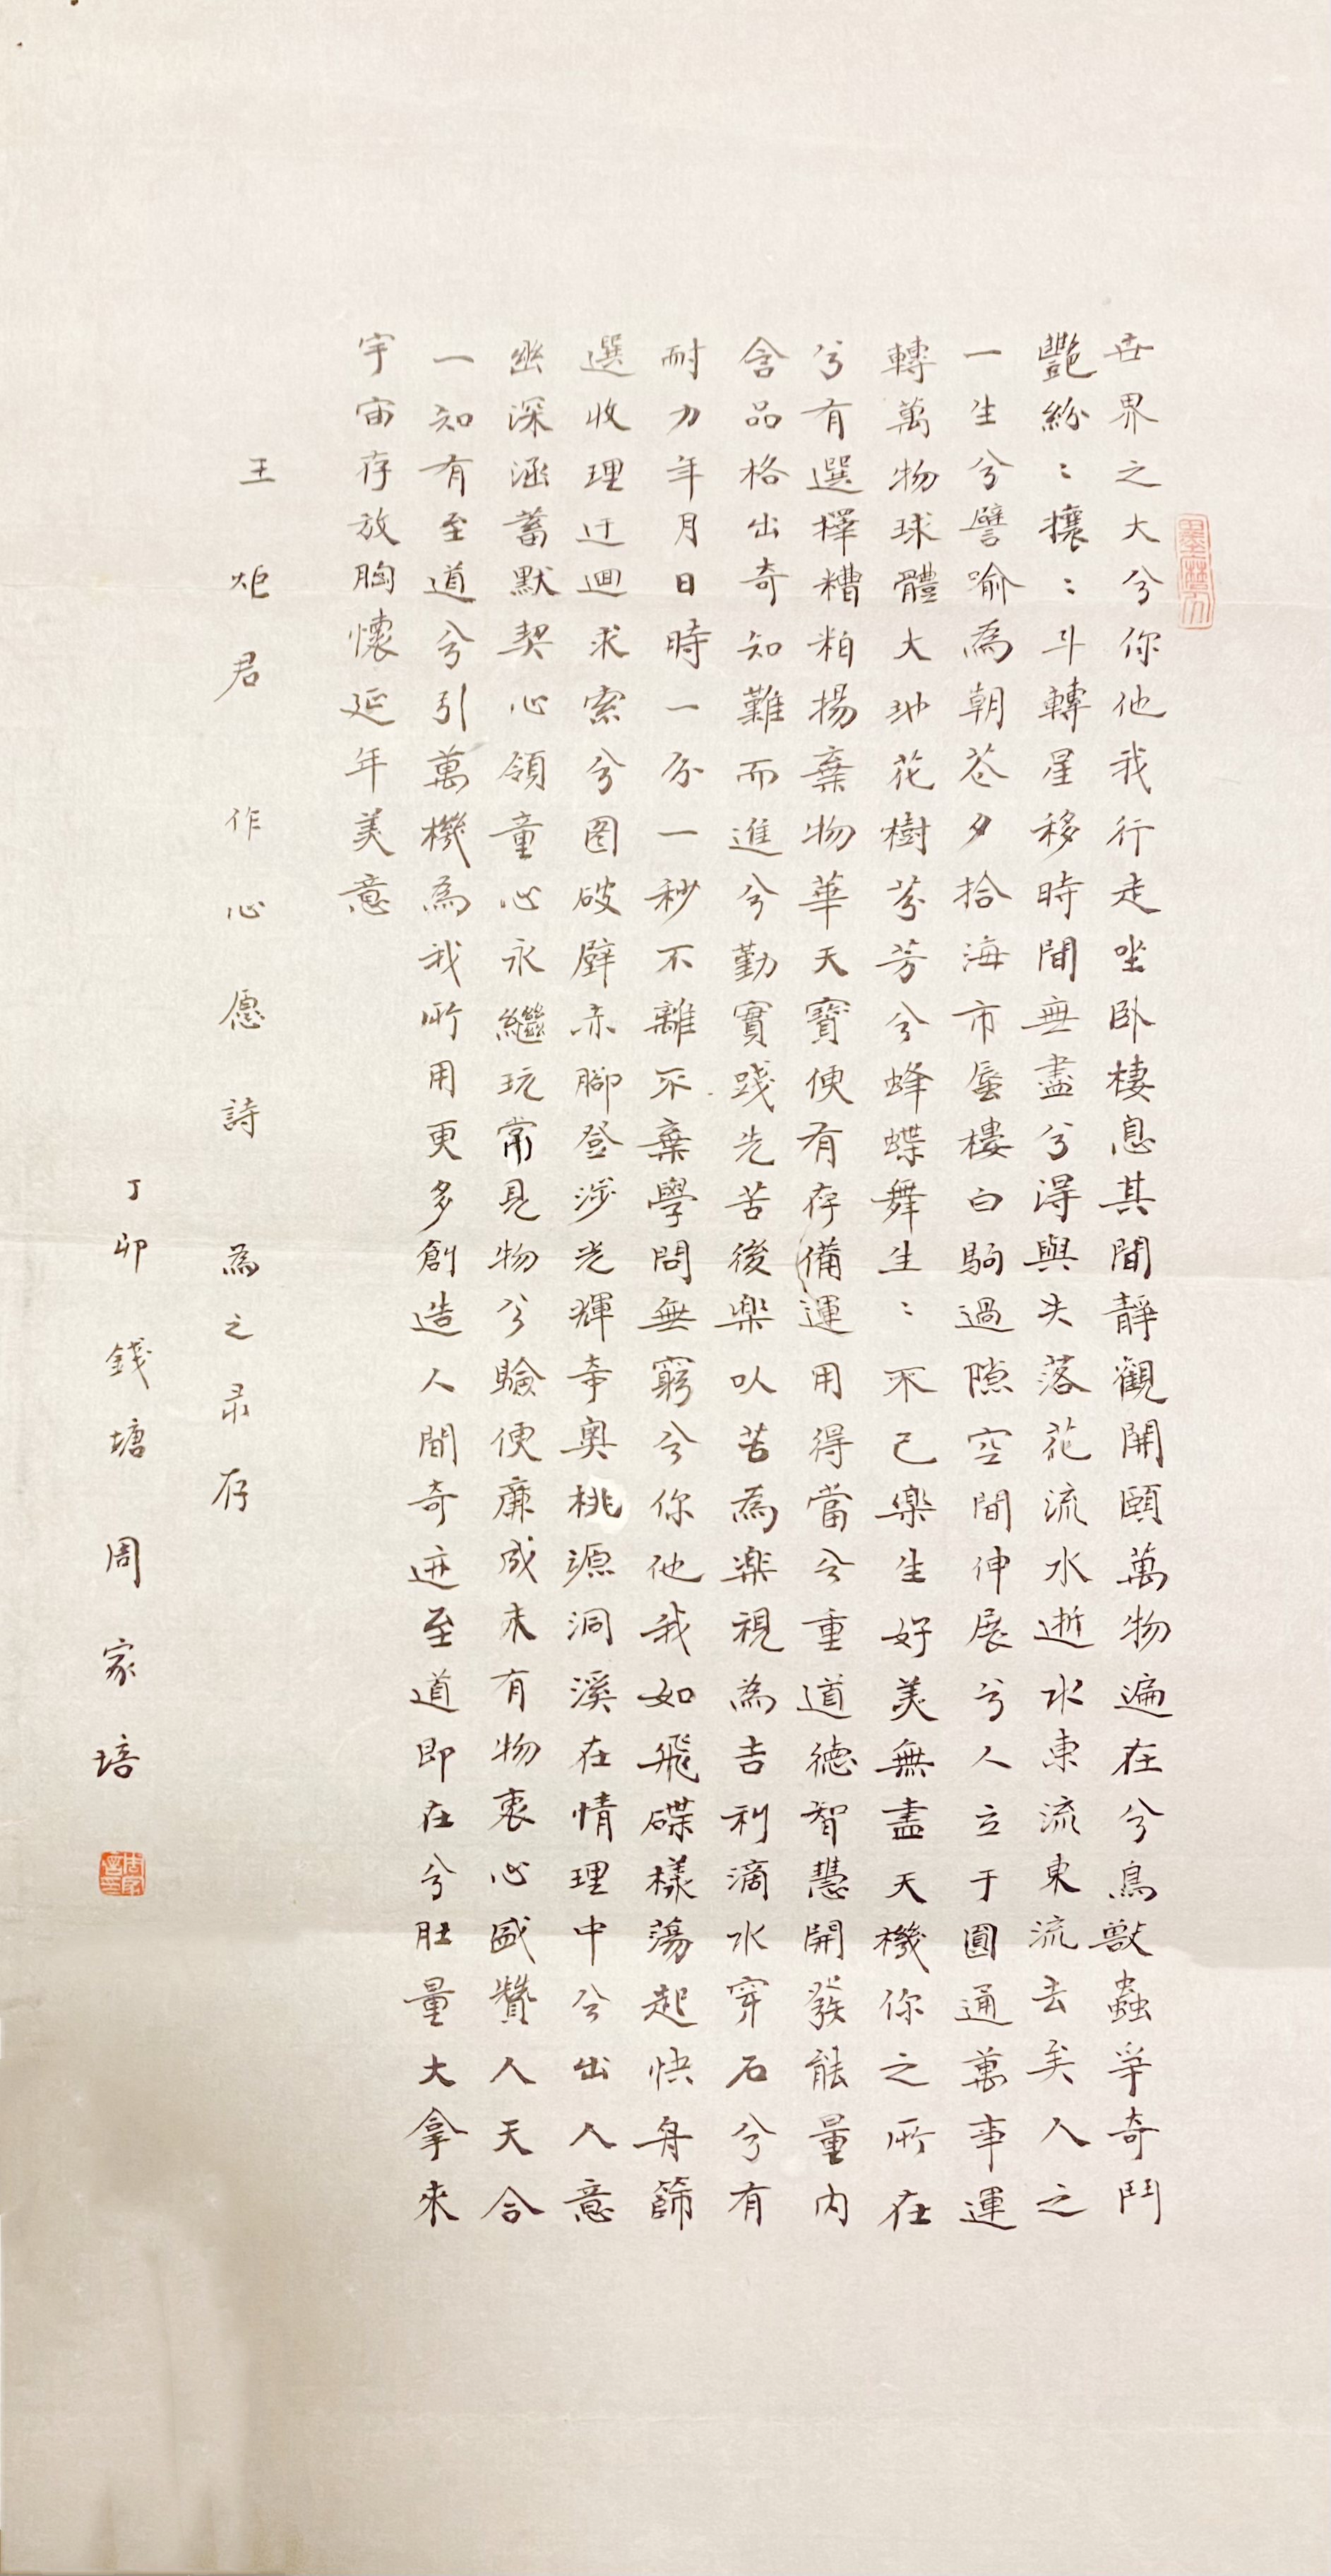 世界之大兮你他我行走坐卧棲息其間靜觀開頤萬物遍在兮鳥獸蟲爭奇鬥
艷紛〻攘〻斗轉星移時間無盡兮得與失落花流水逝水東流東流去矣人之
一生兮譬喻為朝花夕拾海市蜃樓白駒過隙空間伸展兮人立于圓通萬事運
轉萬物球體大地花樹芬芳兮蜂蝶舞生〻不已樂生好美無盡天機你之所在
兮有選擇糟粕揚棄物華天寶使有存備運用得當兮重道德智慧開發能量內
含品格出奇知難而進兮勤實踐先苦後樂以苦為樂視為吉利滴水穿石兮有
耐力年月日時一分一秒不離不棄學問無窮兮你他我如飛碟樣蕩起快舟篩
選收理迂迴求索兮圖破壁赤腳登涉光輝奇奧桃源洞溪在情理中兮出人意
幽深涵蓄默契心領童心永繼玩常見物兮驗便廉成未有物衷心盛贊人天合
一知有至道兮引萬機為我所用更多創造人間奇迹至道即在兮肚量大拿來
宇宙存放胸懷延年美意
王炬君作心愿詩為之录存
丁卯錢塘周家培